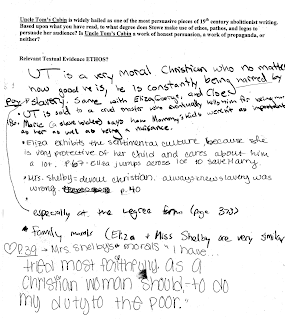 Uncle Tom's Cabin is widely hailed as one of the most persuasive pieces of 19th century abolitionist writing.
Based upon what you have read, to what degree does Stowe make use of ethos, pathos, and logos to
persuade her audience? Is Uncle Tom's Cabin a work of honest persuasion, a work of propaganda, or
neither?
Relevant Textual Evidence ETHOS?
UT is a very moral Christian who no matter
how good he is, he is constantly being
slavery. Same with Eliza, George, and
UT is sold to a and master
Marie (a slave owner) says how Mommy's kids weren't as important
as her as well as being a nuisance.
• Eliza exhibits the sentimental culture because she
is very protective of her child and cares about him
a lot. P67- Eliza jumps across ice to save Harry
• Mrs. Shelby: devout christian. always knew slavery was
wrong. p.40
especially at the
* Family morals (Eliza + Miss Shelby are very similar
P39 → Mrs Shelby's morals "I have...
tried most faithfully as a
Christian woman should-to do
my duty to the poor."